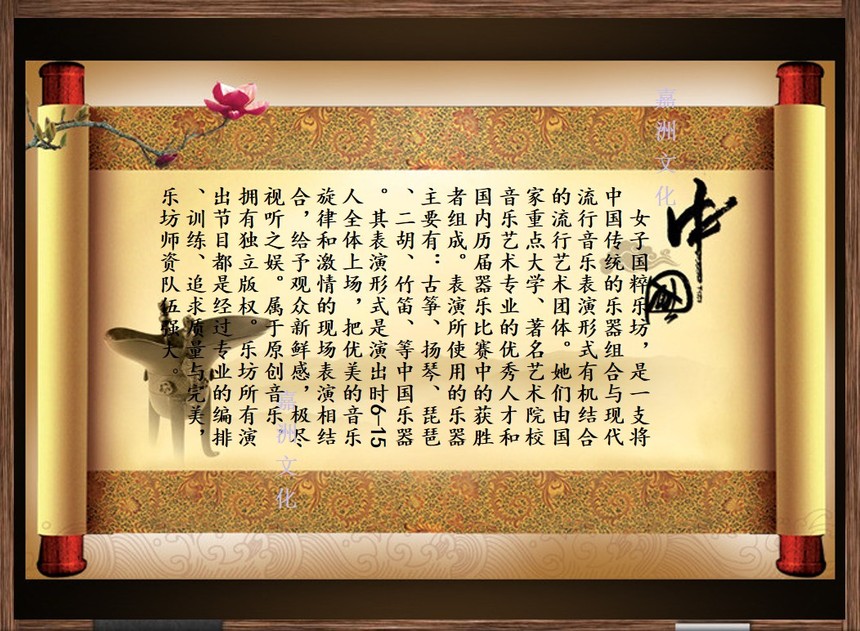 中国
女子国粹乐坊，是一支将
中国传统的乐器组合与现代
流行音乐表演形式有机结合
的流行艺术团体。她们由国
家重点大学、著名艺术院校
音乐艺术专业的优秀人才和
国内历届器乐比赛中的获胜
者组成。表演所使用的乐器
主要有：古筝、扬琴、琵琶
、二胡、竹笛、等中国乐器
。其表演形式是演出时6-15
人全体上场，把优美的音乐
旋律和激情的现场表演相结
合，给予观众新鲜感，极尽
视听之娱。属于原创音乐，
拥有独立版权。乐坊所有演
出节目都是经过专业的编排
、训练、追求质量与完美，
乐坊师资队伍强大。
嘉洲文化
嘉洲文化